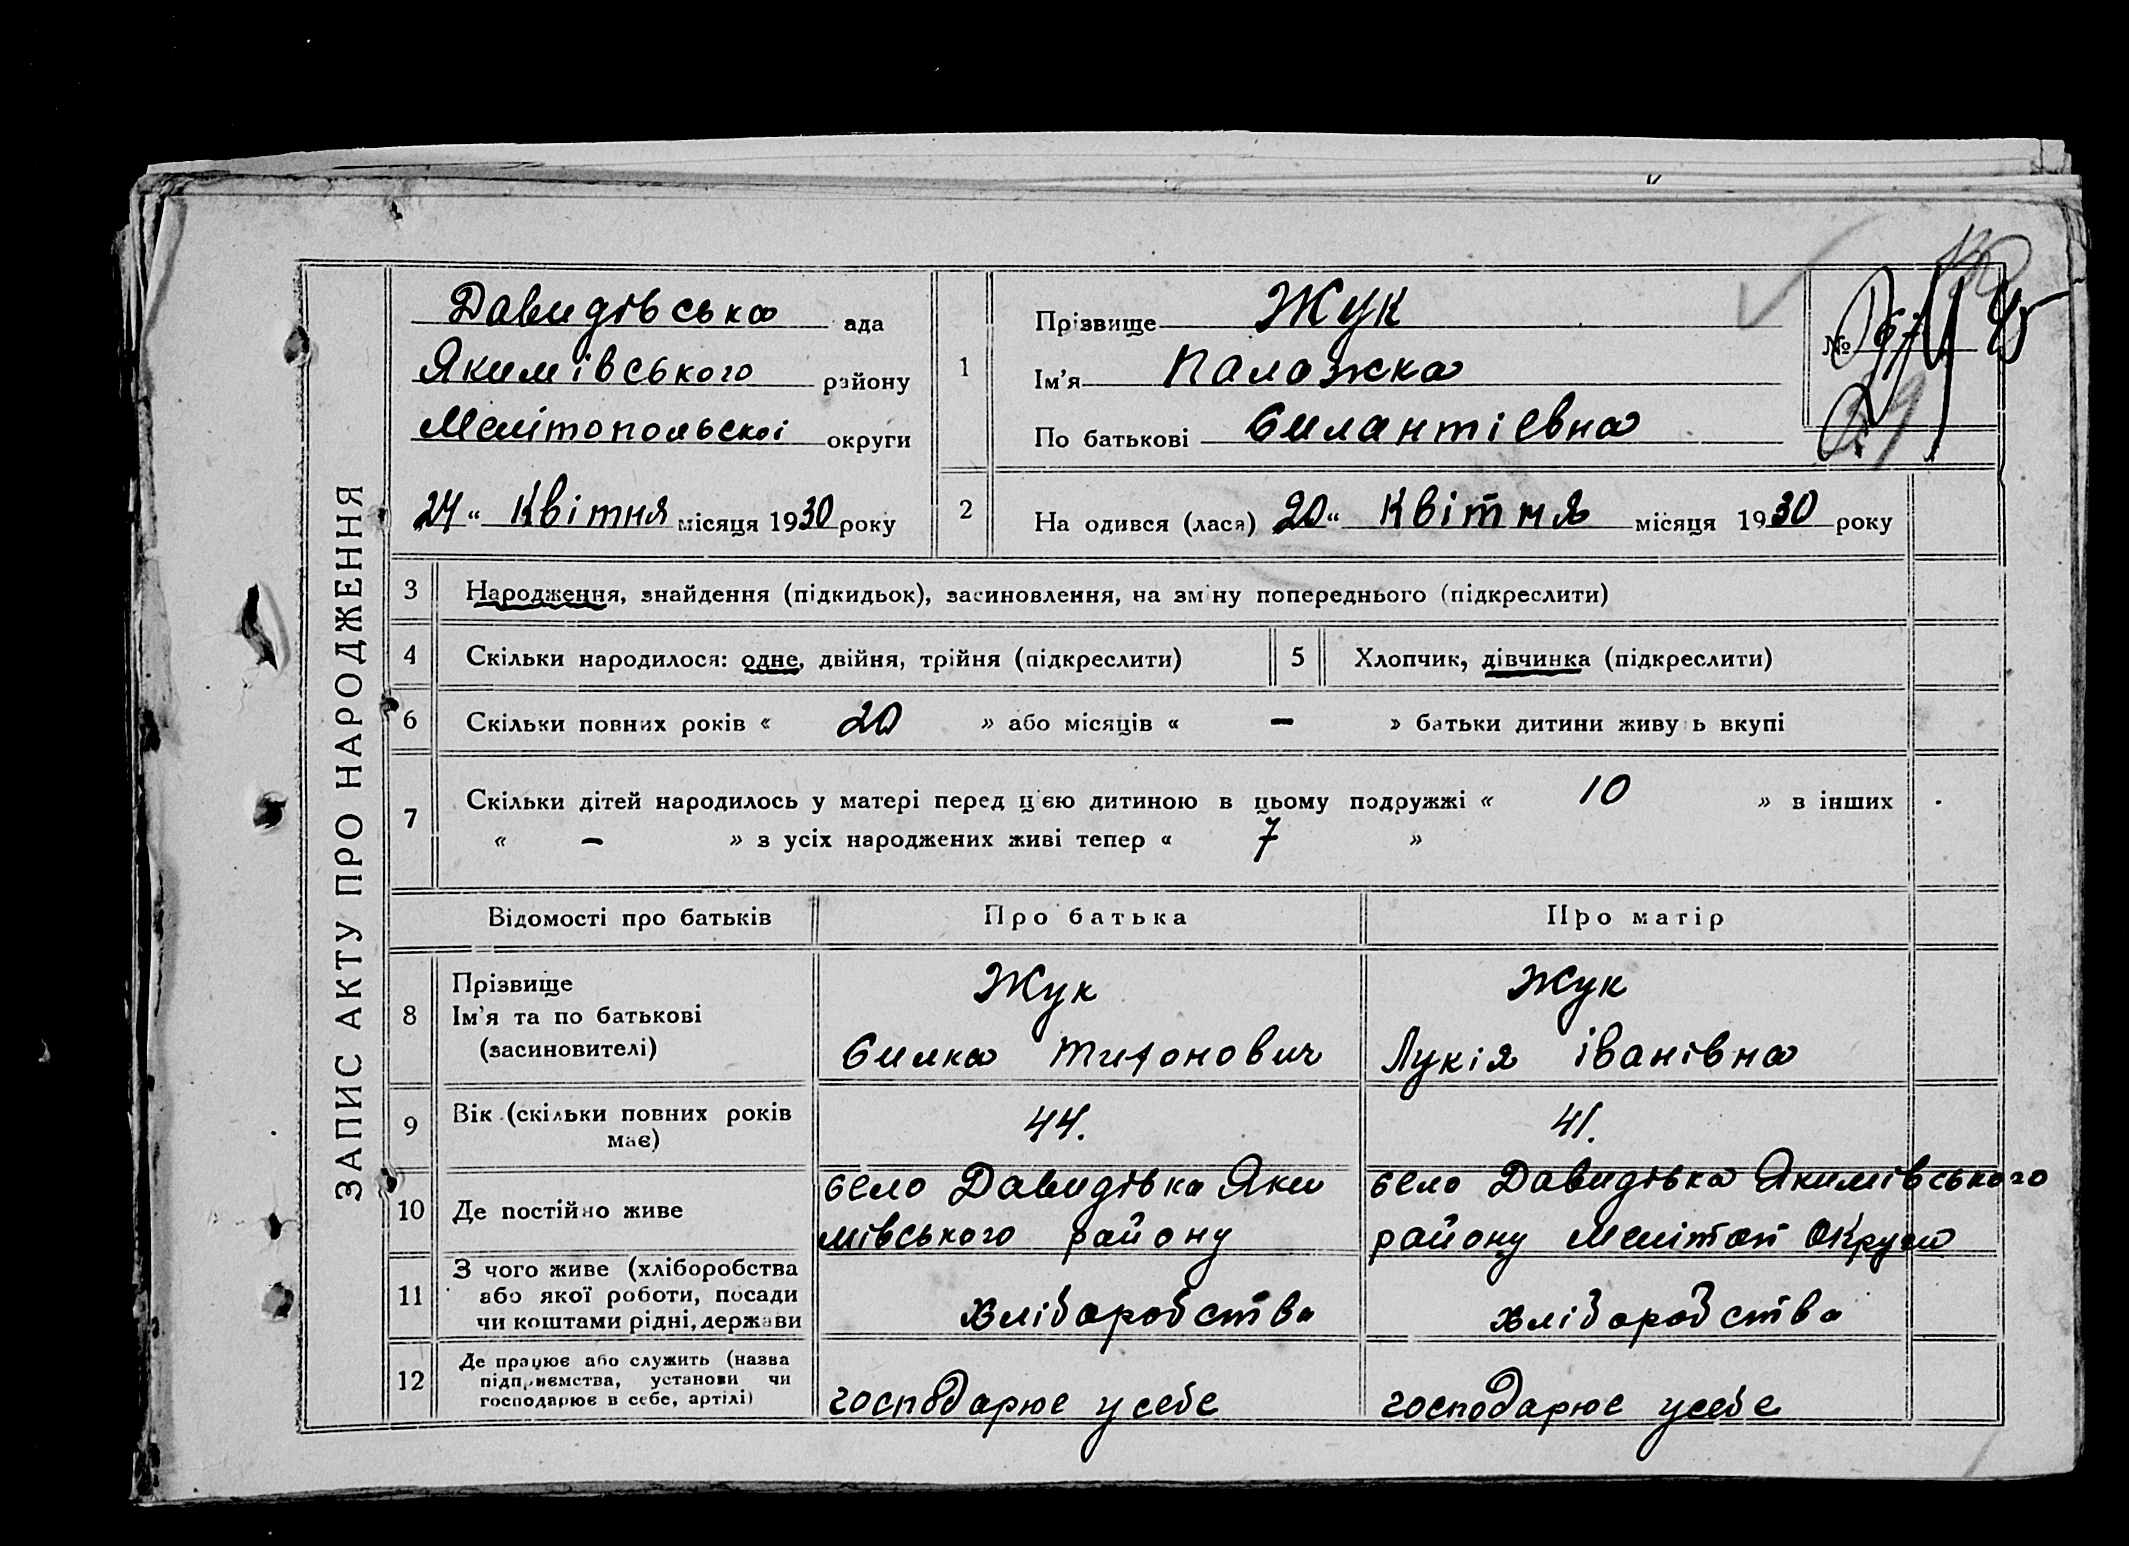 ЗАПИС АКТУ ПРО НАРОДЖЕННЯ
Давидівська ада
Якимівського району
Мелітопольскоі округи
24 " Квітня місяця 1930 року
1
Прізвище Жук
Ім'я Паложка
По батькові Силантіевна
№
2
На одився (лася) 20 " Квітня місяця 1930 року
3 Народження, знайдення (підкидьок), засиновлення, на зміну попереднього (підкреслити)
4 Скільки народилося: одне, двійня, трійня (підкреслити)
5 Хлопчик, дівчинка (підкреслити)
6 Скільки повних років « 20 » або місяців « – » батьки дитини живу ь вкупі
7 Скільки дітей народилось у матері перед цією дитиною в цьому подружжі « 10 » в інших
« – » з усіх народжених живі тепер « 7 »
Відомості про батьків Про батька Про матір
8 Прізвище
Ім'я та по батькові
(засиновителі)
Жук
Силка Тихонович
Жук
Лукія іванівна
9 Вік (скільки повних років
має)
44.
41.
10 Де постійно живе
село Давидівка Яки
мівського району
село Давидівка Якимівського
району Меліто⁠п Округи
11 З чого живе (хліборобства
або якої роботи, посади
чи коштами рідні, держави
хліборобства
хліборобства
12 Де працює або служить (назва
підприємства, установи чи
господарює в себе, артілі)
господарюе у себе
господарюе у себе